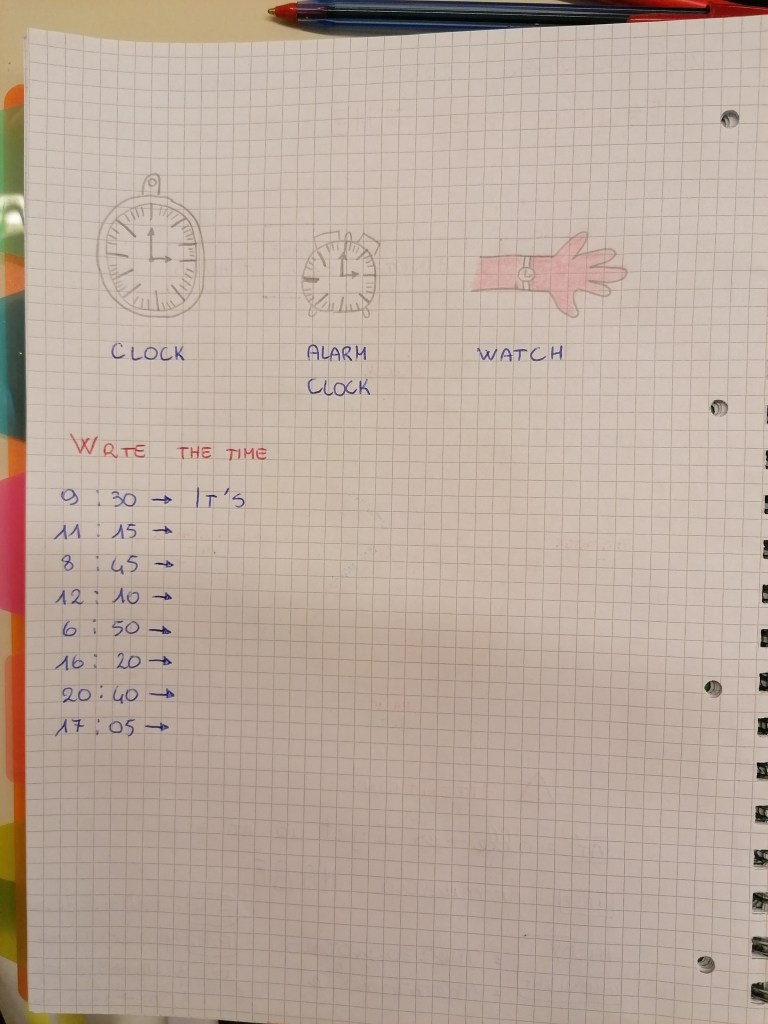 CLOCK ALARM WATCH
CLOCK
WRTE THE TIME
9 : 30 → IT'S
11 : 15 →
8 : 45 →
12 : 10 →
6 : 50 →
16 : 20 →
20 : 40 →
17 : 05 →